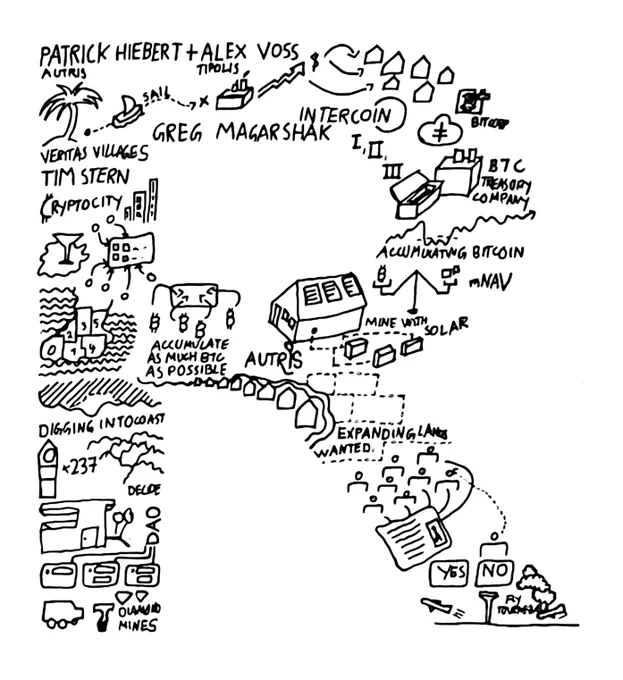 PATRICK HIEBERT + ALEX VOSS
AUTRIS
TIPOLIS
SAIL
X
$
INTERCOIN
GREG MAGARSHAK
VERITAS VILLAGES
I, II,
III
BTC
TREASURY
COMPANY
TIM STERN
CRYPTOCITY
ACCUMULATING BITCOIN
mNAV
MINE WITH SOLAR
ACCUMULATE
AS MUCH BTC
AS POSSIBLE
AUTRIS
0 1 2 3 4 5
DIGGING INTO COAST
EXPANDING LAND
WANTED.
×237
DECIDE
DAO
YES
NO
FLY
DIAMOND
MINES